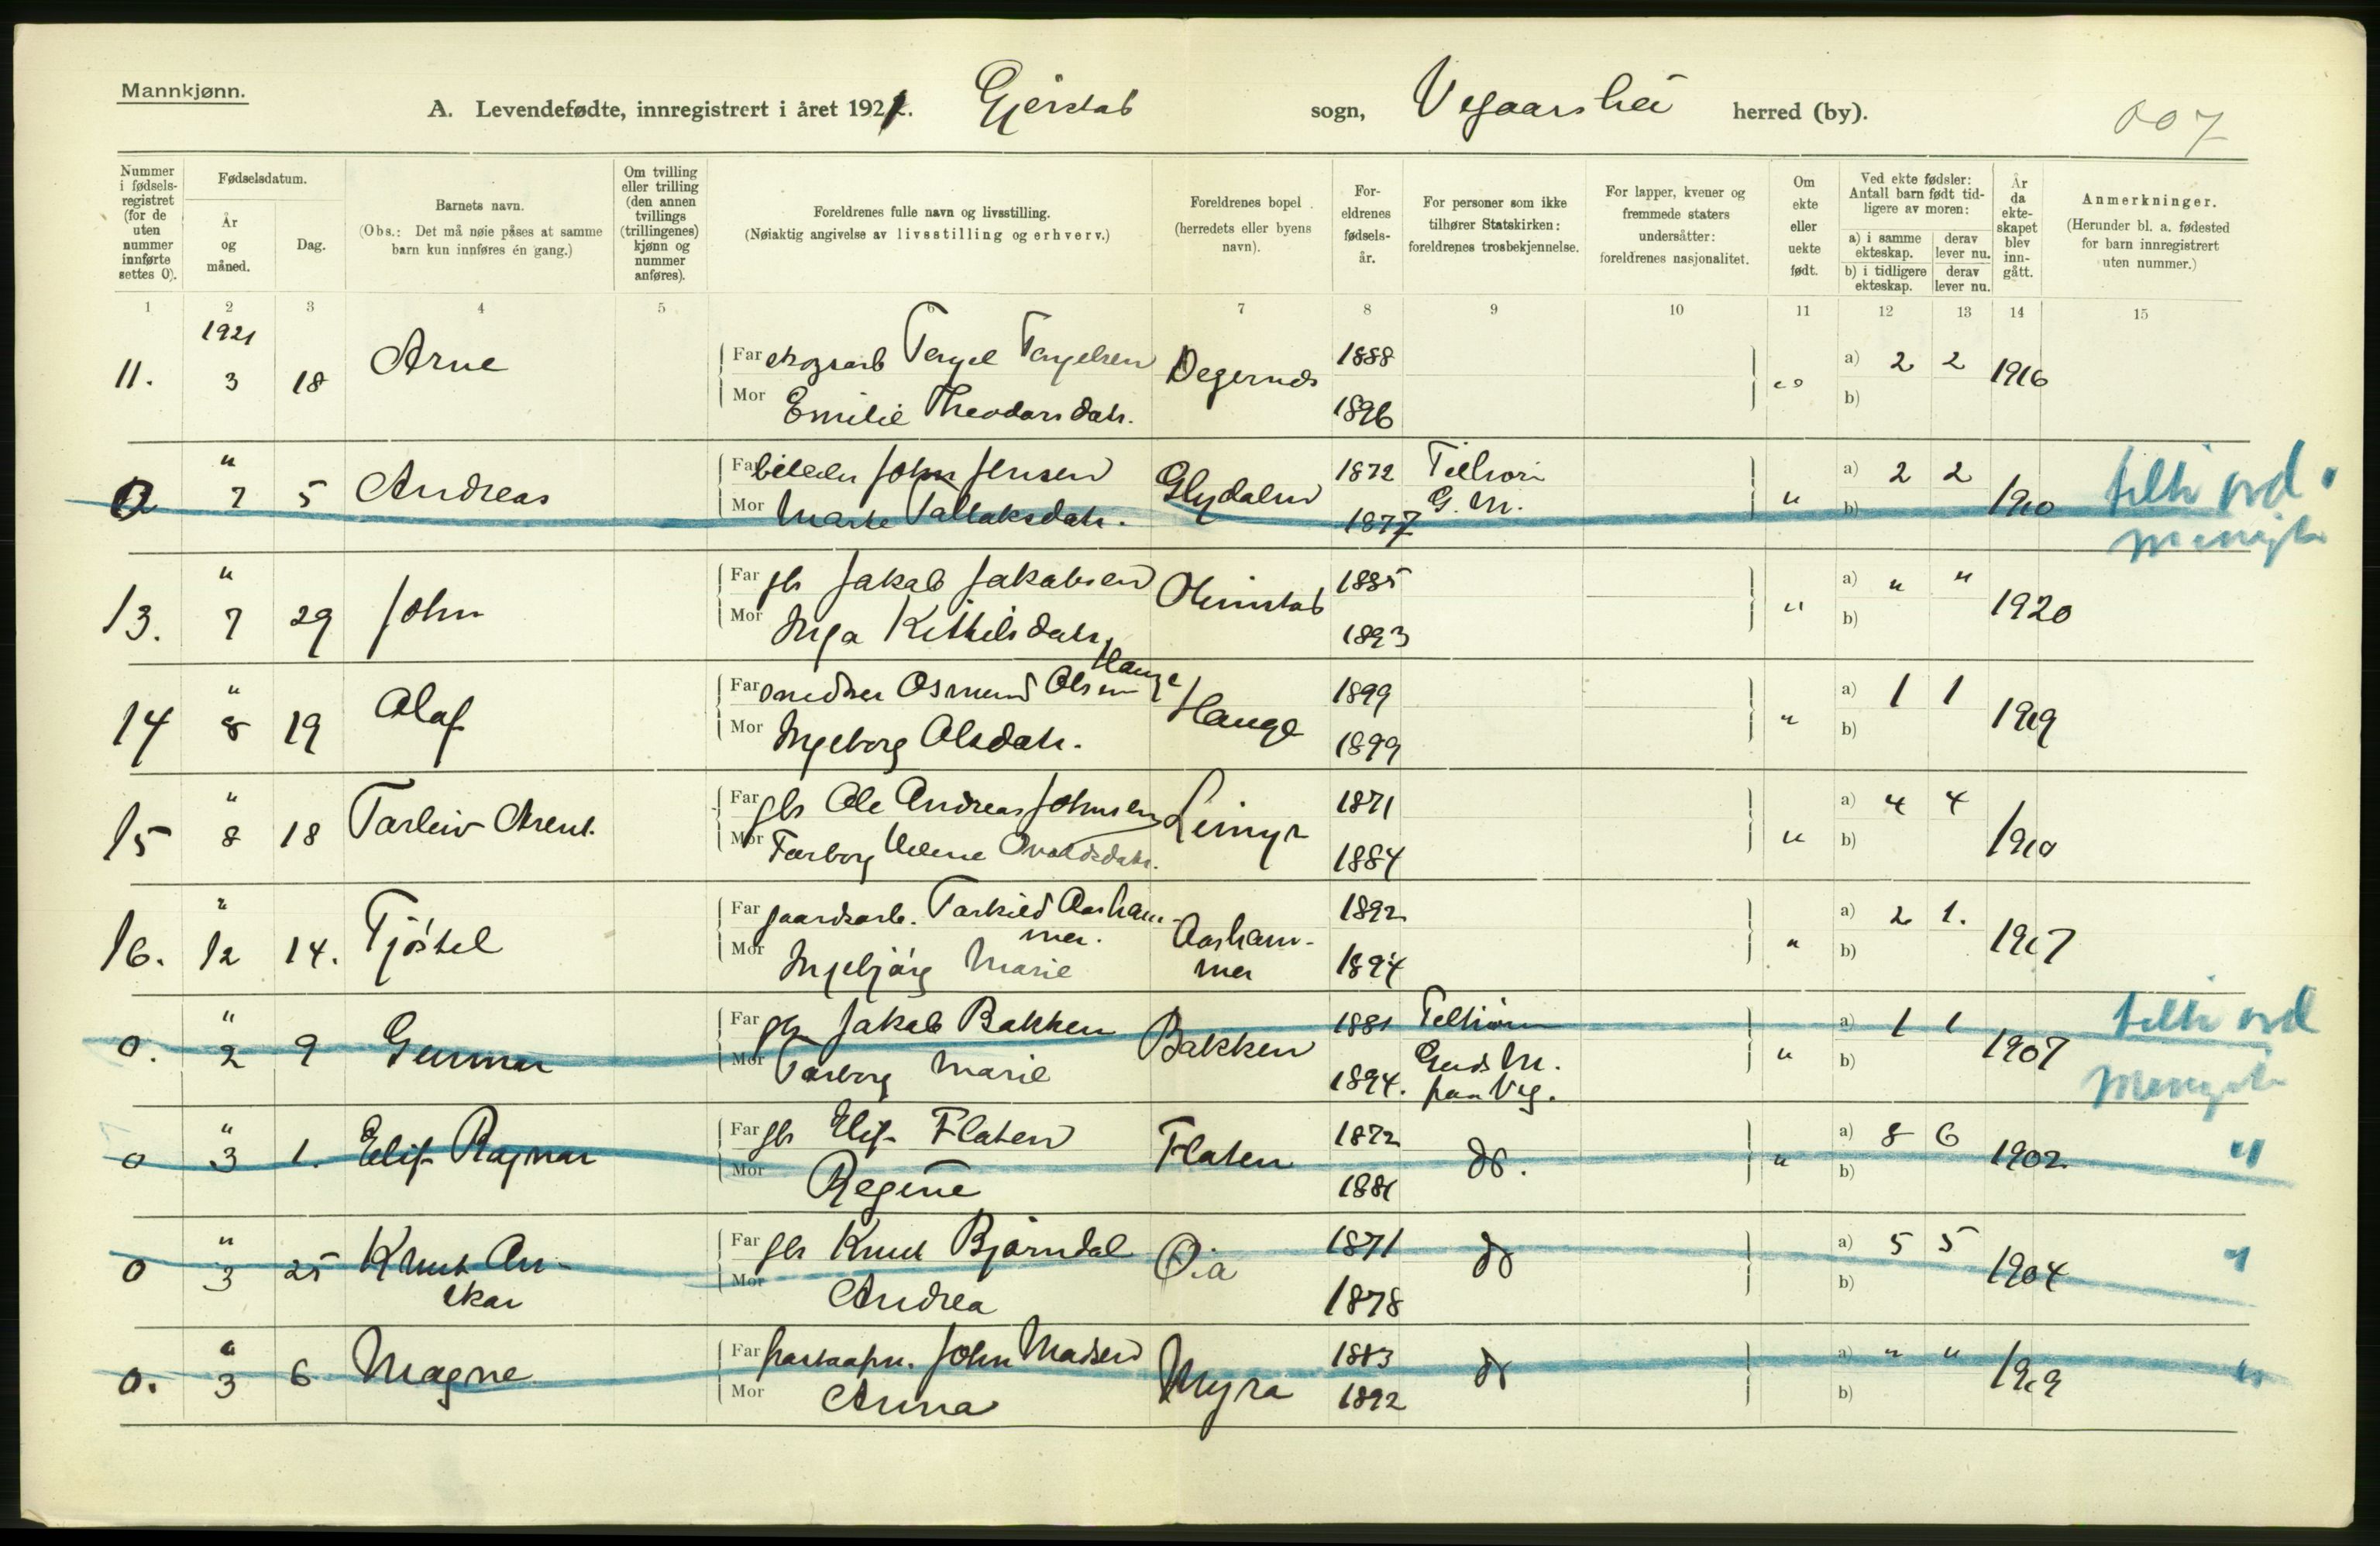 Mannkjønn.
A. Levendefødte, innregistrert i året 1921. Gjerstad sogn, Vegaarshei herred (by).
007
Nummer i fødsels-registret (for de uten nummer innførte settes 0).
Fødselsdatum.
År og måned.
Dag.
Barnets navn.
(Obs.: Det må nøie påses at samme barn kun innføres én gang.)
Om tvilling eller trilling (den annen tvillings (trillingenes) kjønn og nummer anføres).
Foreldrenes fulle navn og livsstilling.
(Nøiaktig angivelse av livsstilling og erhverv.)
Foreldrenes bopel
(herredets eller byens navn).
For-eldrenes fødsels-år.
For personer som ikke tilhører Statskirken: foreldrenes trosbekjennelse.
For lapper, kvener og fremmede staters undersåtter: foreldrenes nasjonalitet.
Om ekte eller uekte født.
Ved ekte fødsler: Antall barn født tid-ligere av moren:
a) i samme ekteskap.
derav lever nu.
b) i tidligere ekteskap.
derav lever nu.
År da ekte-skapet blev inn-gått.
Anmerkninger.
(Herunder bl. a. fødested for barn innregistrert uten nummer.)
1 2 3 4 5 6 7 8 9 10 11 12 13 14 15
1921
11. 3 18 Arne Far Terjel Terjelsen Degernes 1888 a) 2 2 1916
Mor Emilie Theodorsdatr. 1896 b)
"
0 7 5 Andreas Far John Jensen Glydalen 1872 G. M. " a) 2 2 1910
Mor Marte Tallaksdatr. 1877 b)
"
13. 7 29 John Far gb Jakob Jakobsen Olimstad 1885 " a) " " 1920
Mor Inga Kittilsdatr. 1893 b)
"
14 8 19 Olaf Far snedker Osmund Olsen Hauge Hauge 1899 " a) 1 1 1919
Mor Ingeborg Olsdatr. 1899 b)
"
15 8 18 Tarleiv Arent. Far gb Ole Andreas Johnsen Limyr 1871 " a) 4 4 1910
Mor Torborg Helene 1884 b)
"
16. 12 14. Tjøstel Far gaardsarb. Torkild Aasham-mer. Aasham-mer 1892 " a) 2 1. 1917
Mor Ingebjørg Marie 1894 b)
"
0. 2 9 Gunnar Far gb Jakob Bakken Bakken 1881 Guds M. paa Veg. " a) 1 1 1907
Mor Torborg Marie 1894. b)
"
0 3 1. Elif Ragnar Far gb Elif Flaten Flaten 1872 do. " a) 8 6 1902. "
Mor Regine 1881 b)
"
0 3 25 Knut An-skar Far gb Knut Bjørndal Øia 1871 do a) 5 5 1904 "
Mor Andrea 1878 b)
"
0. 3 6 Magne Far John Madsen Myra 1883 do a) " " 1919 "
Mor Anna 1892 b)